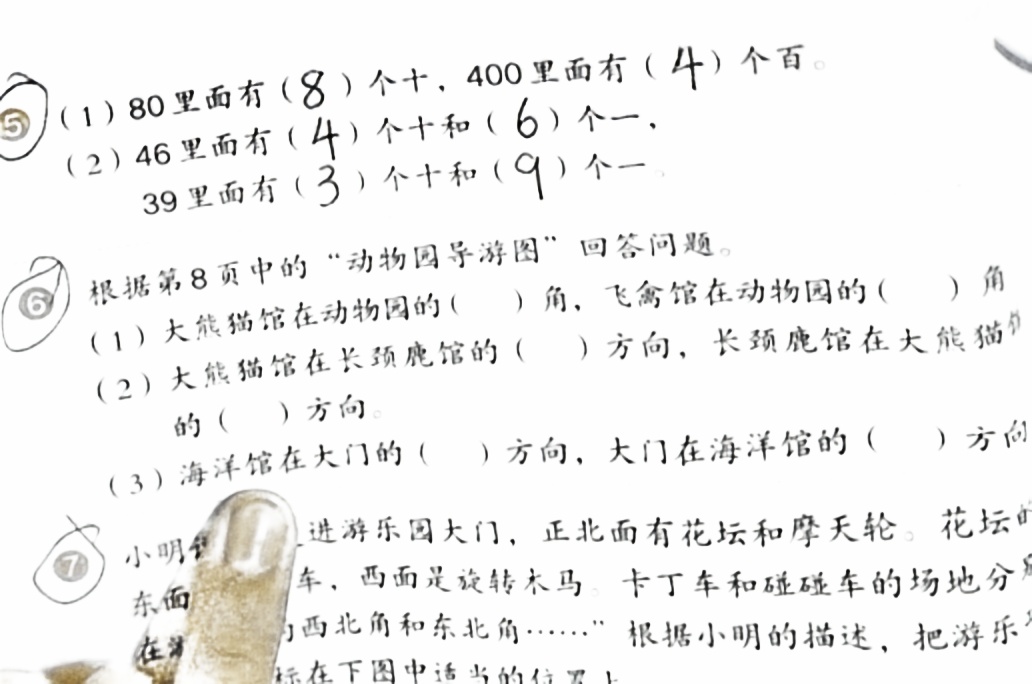 5 (1) 80里面有(8)个十，400里面有(4)个百。
(2) 46里面有(4)个十和(6)个一，
39里面有(3)个十和(9)个一。
6 根据第8页中的“动物园导游图”回答问题。
(1) 大熊猫馆在动物园的(  )角，飞禽馆在动物园的(  )角
(2) 大熊猫馆在长颈鹿馆的(  )方向，长颈鹿馆在大熊猫
的(  )方向。
(3) 海洋馆在大门的(  )方向，大门在海洋馆的(  )方向
7 小明 进游乐园大门，正北面有花坛和摩天轮。花坛的
东面 车，西面是旋转木马。卡丁车和碰碰车的场地分
在 西北角和东北角……”根据小明的描述，把游乐
标在下图中适当的位置上